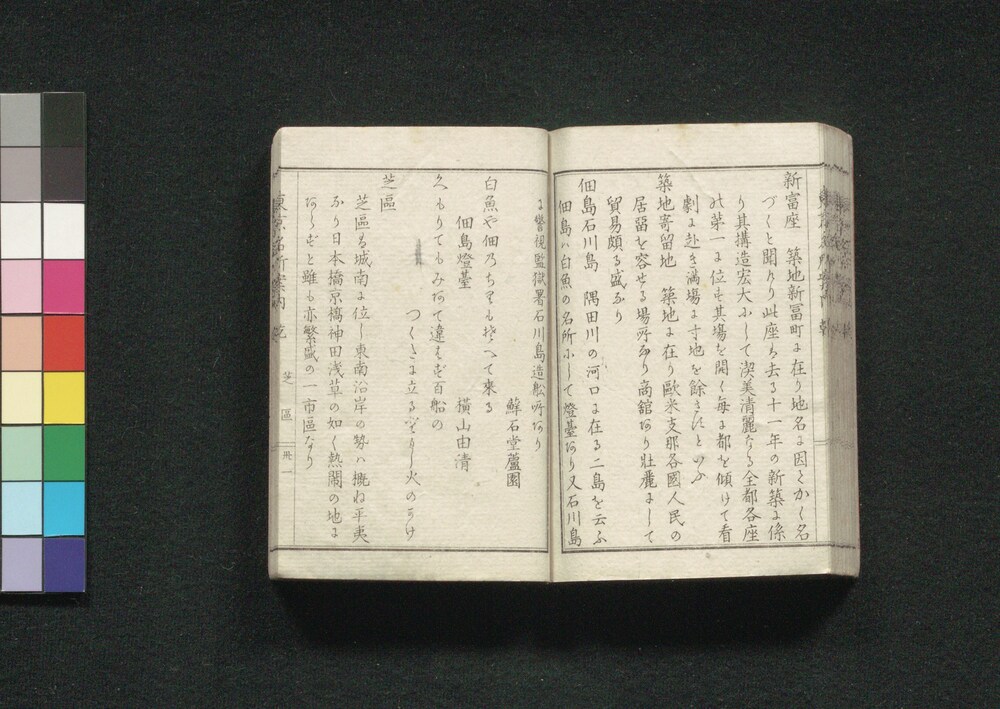 新富座　築地新冨町に在り地名に因てかく名
づくと聞けり此座は去る十一年の新築に係
り其搆造宏大にして潔美清麗なる全都各座
の第一に位す其場を開く毎に都を傾けて看
劇に赴き満場に寸地を餘さずと
築地寄留地　築地に在り歐米支那各國人民の
居留を容せる場所なり商舘あり壯麗にして
貿易頗る盛なり
佃島石川島　隅田川の河口に在る二島を云ふ
佃島ハ白魚の名所にして燈臺あり又石川島
に警視監獄署石川島造舩所あり
鮮石堂蘆園
白魚や佃のちりも 来る
佃島燈臺　横山由清
くもりてもみえて違はず百船の
つくだに立る 火のかげ
芝區
芝區は城南に位し東南沿岸の勢ハ概ね平夷
なり日本橋京橋神田浅草の如く熱閙の地に
あらずと雖も亦繁盛の一市區なり
東京名所案内　乾　芝區　卅一